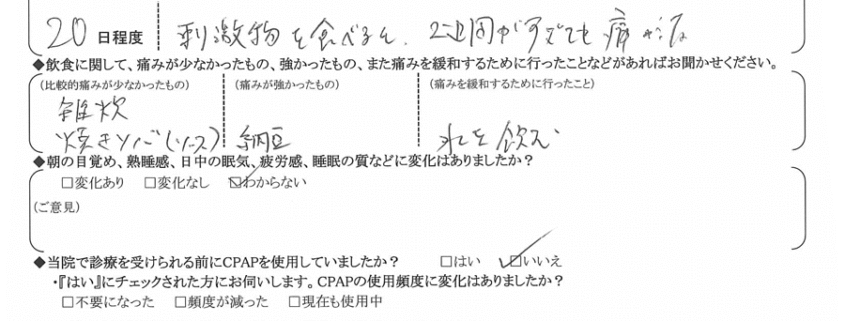 20 日程度 刺激物を食べると、2週間がすぎても痛がる
◆飲食に関して、痛みが少なかったもの、強かったもの、また痛みを緩和するために行ったことなどがあればお聞かせください。
(比較的痛みが少なかったもの) (痛みが強かったもの) (痛みを緩和するために行ったこと)
雑炊
焼きソバ(ソース) 納豆 水を飲む
◆朝の目覚め、熟睡感、日中の眠気、疲労感、睡眠の質などに変化はありましたか？
□変化あり □変化なし ☑わからない
(ご意見)
◆当院で診療を受けられる前にCPAPを使用していましたか？ □はい ☑いいえ
・『はい』にチェックされた方にお伺いします。CPAPの使用頻度に変化はありましたか？
□不要になった □頻度が減った □現在も使用中